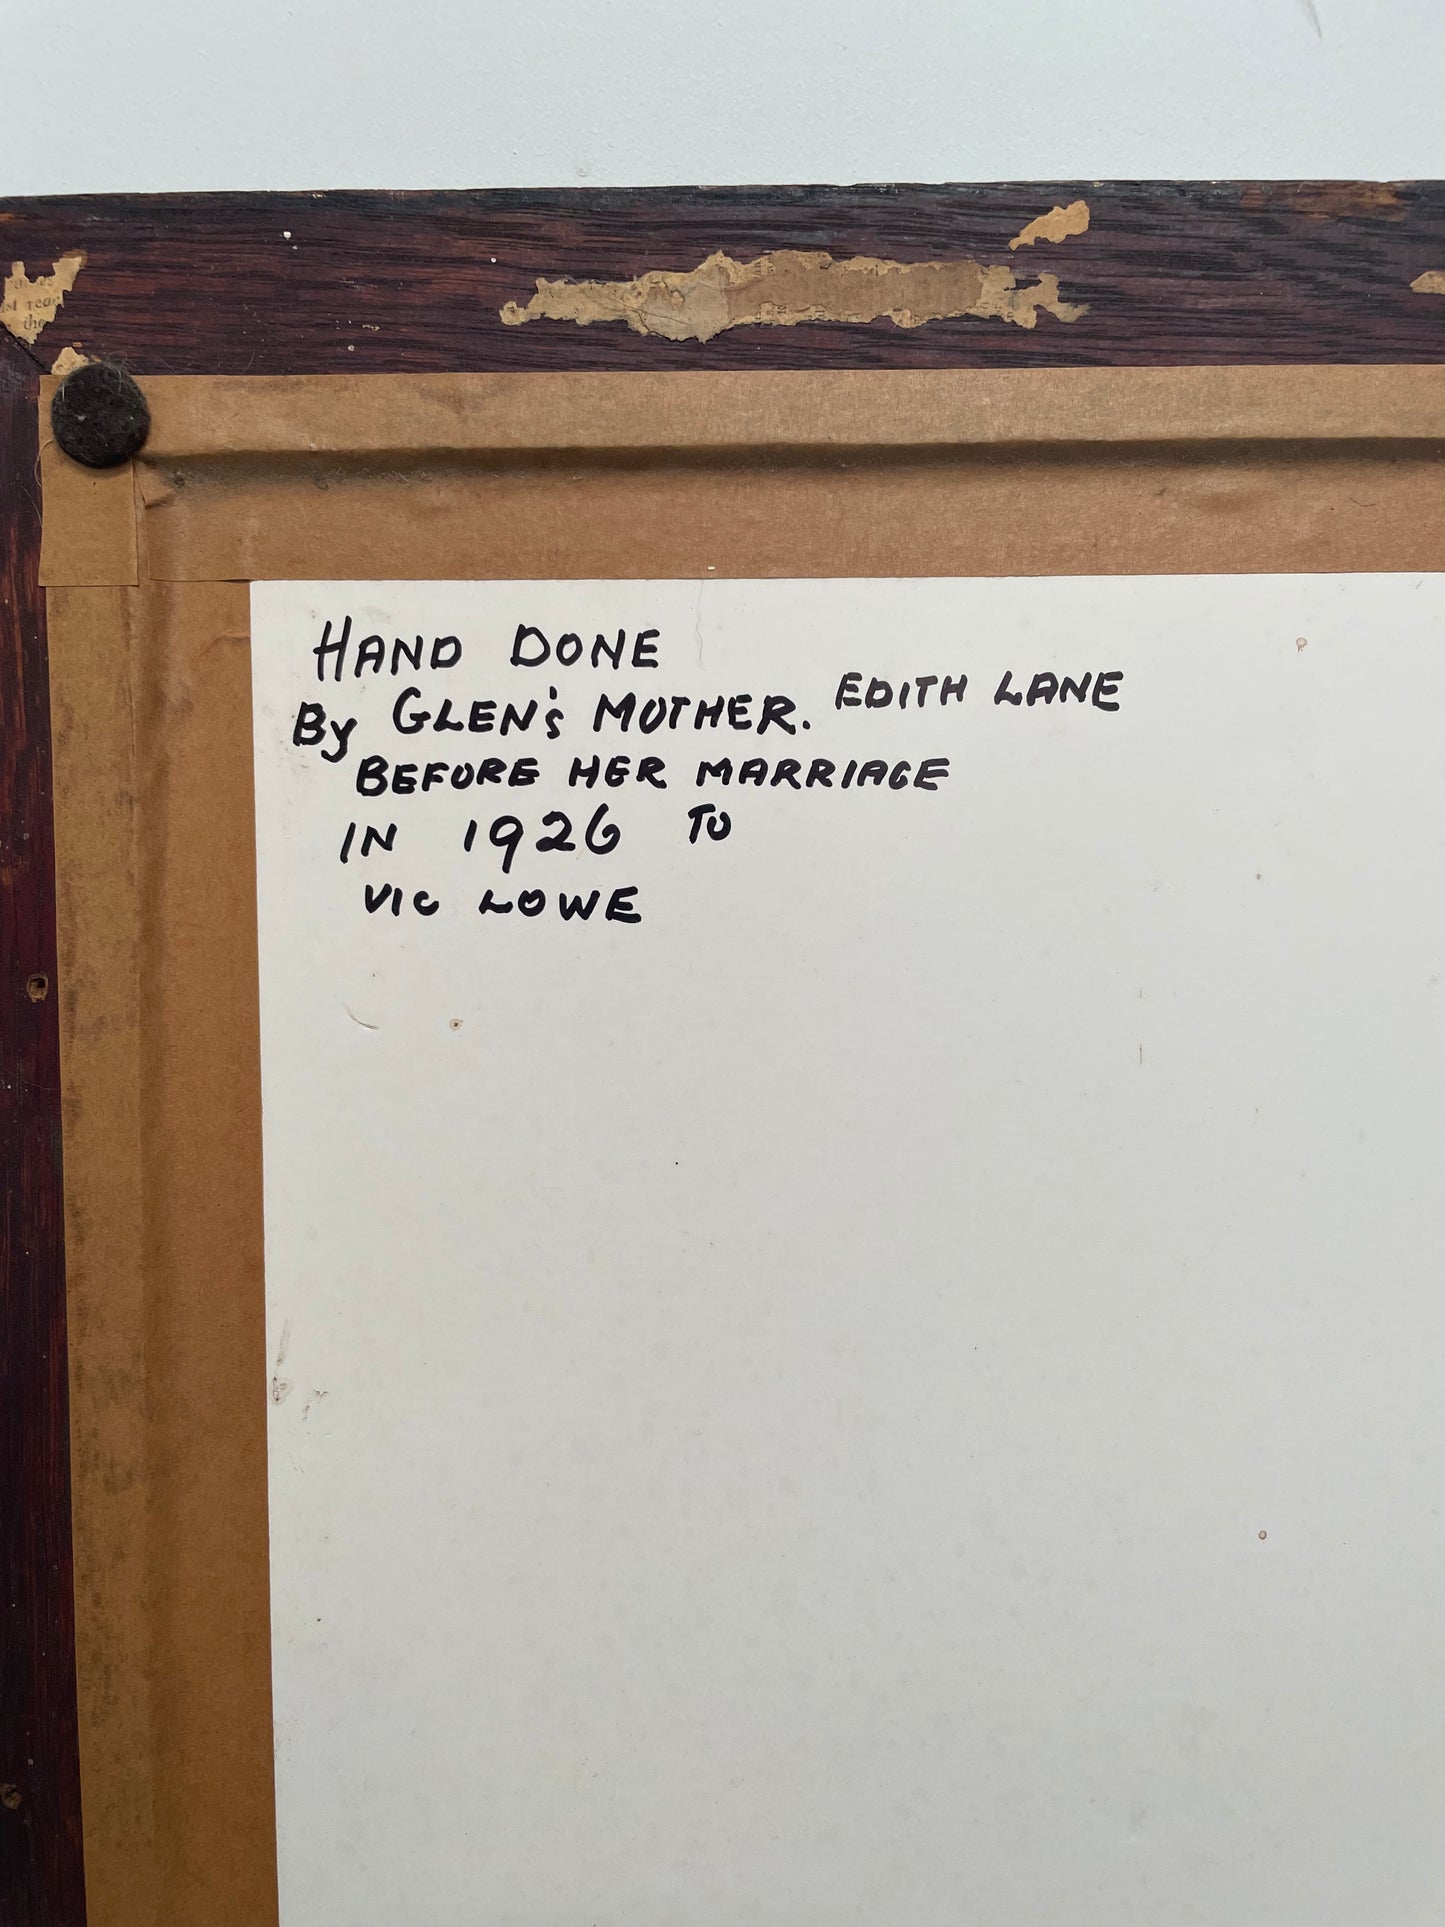 HAND DONE
By GLEN's MOTHER. EDITH LANE
BEFORE HER MARRIAGE
IN 1926 TO
VIC LOWE
the